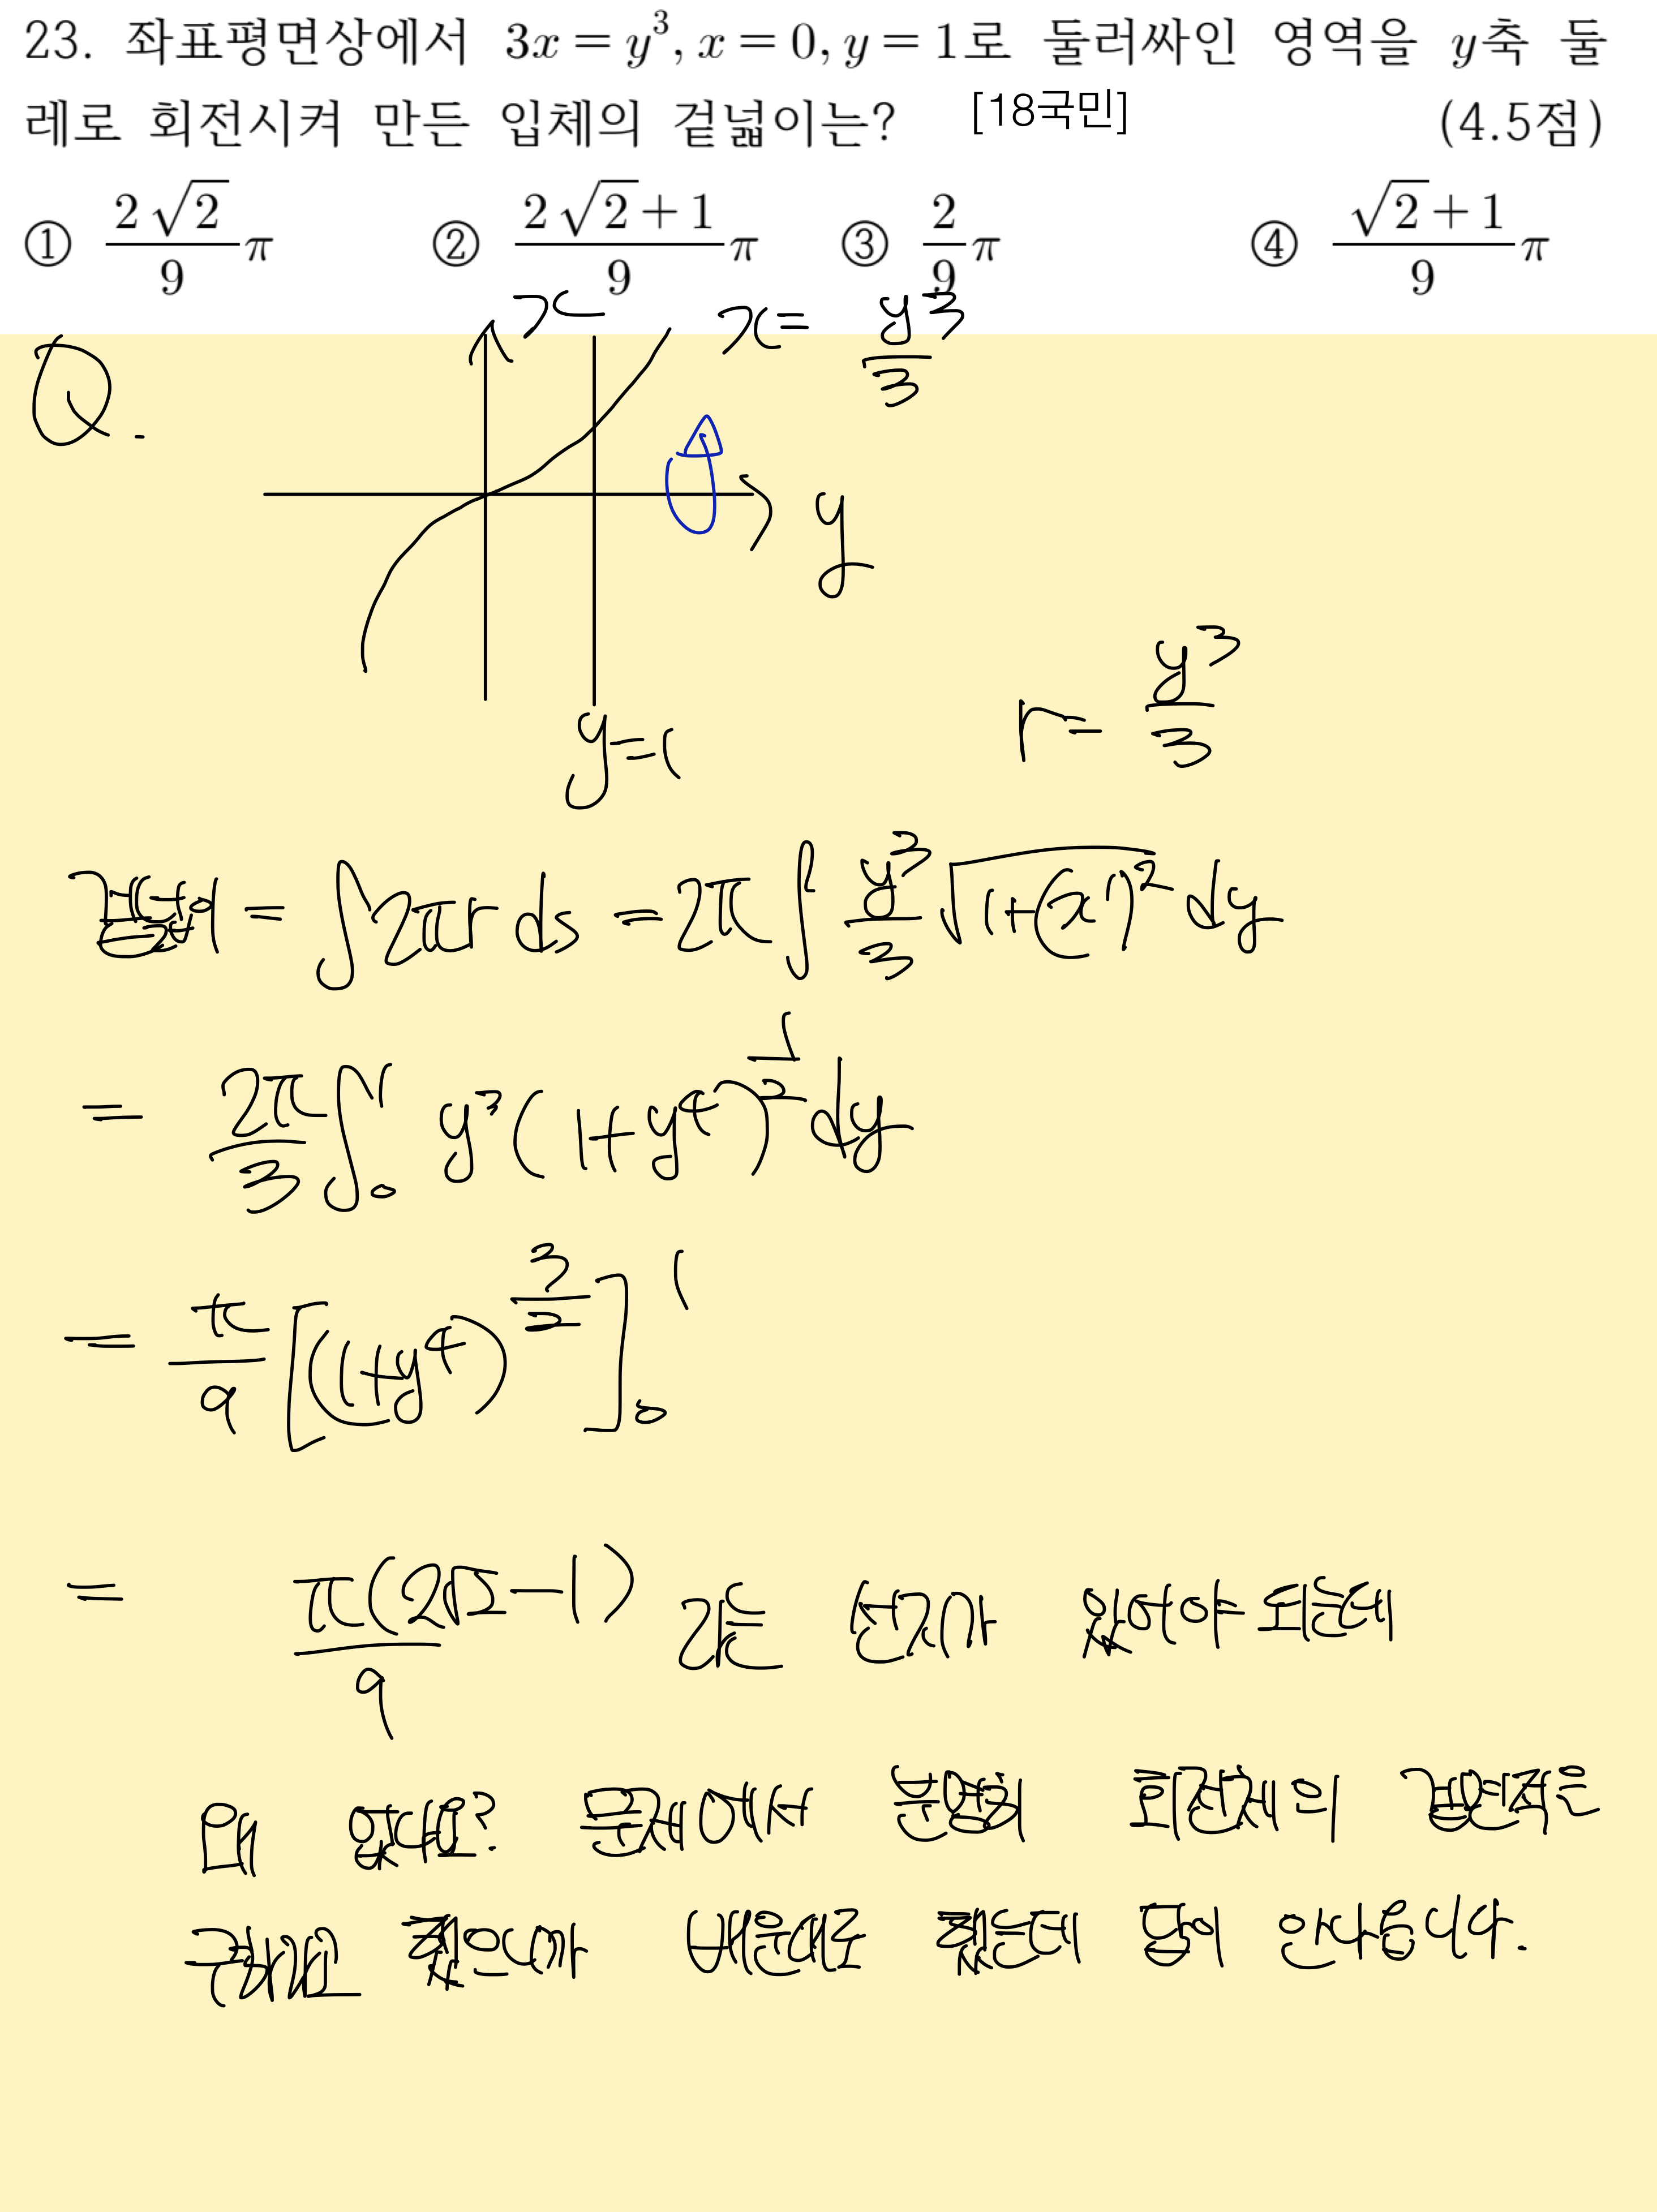 23. 좌표평면상에서 3x = y³, x = 0, y = 1로 둘러싸인 영역을 y축 둘
레로 회전시켜 만든 입체의 겉넓이는? [18국민] (4.5점)
① 2√2/9 π ② (2√2+1)/9 π ③ 2/9 π ④ (√2+1)/9 π
Q.
x
x = y³/3
y
y=1
r = y³/3
겉넓이 = ∫2πr ds = 2π ∫ y³/3 √(1+(x')²) dy
= 2π/3 ∫₀¹ y³(1+y⁴)^(1/2) dy
= π/9 [(1+y⁴)^(3/2)]₀¹
= π(2√2-1)/9 라는 선지가 있어야 되는데
왜 없나요? 문제에서 분명히 회전체의 겉면적을
구하라고 했으니까 배운대로 했는데 답이 안나옵니다.